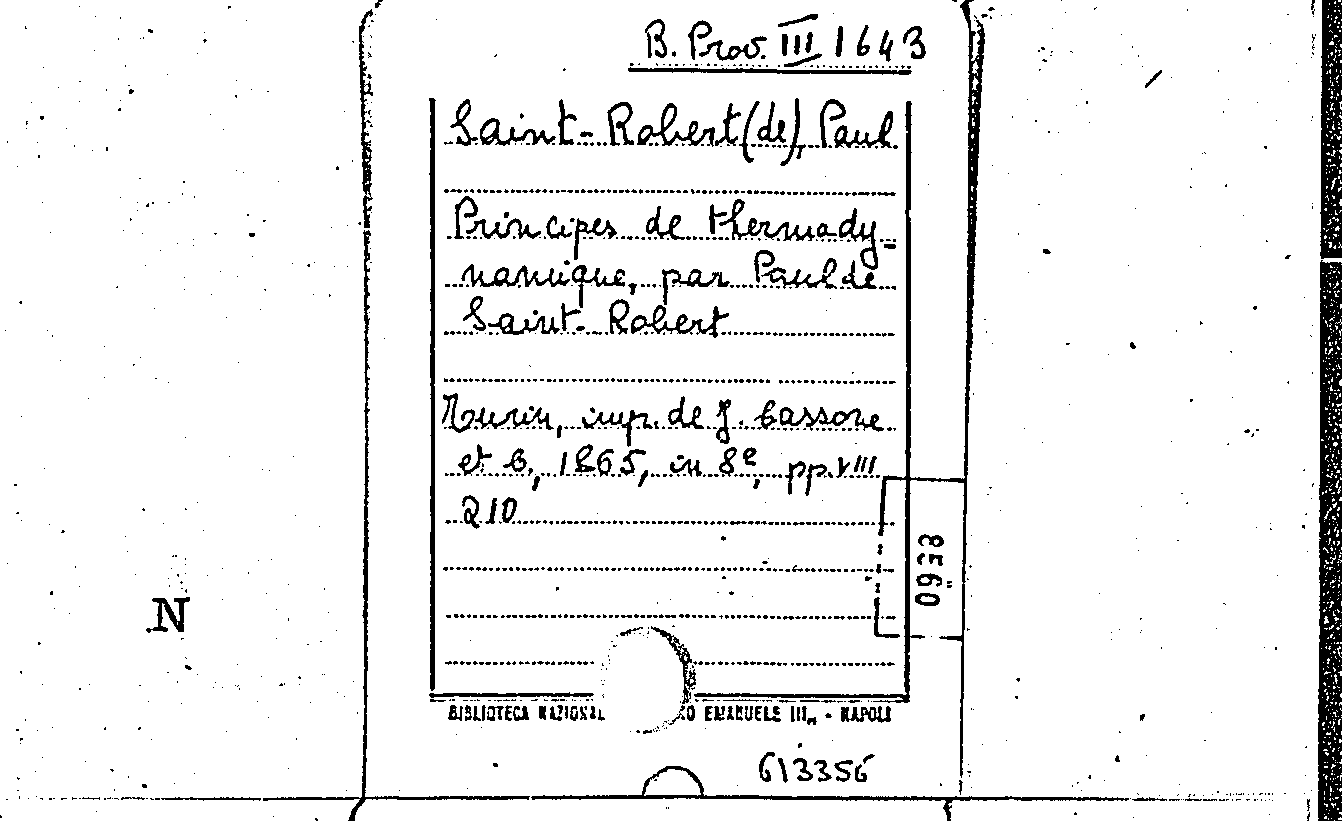 B. Prov. III 1643
Saint-Robert (de), Paul
Principes de thermody-
namique, par Paul de
Saint-Robert
Turin, imp. de J. Cassone
et C., 1865, in 8º, pp. VIII
210
8560
N
BIBLIOTECA NAZIONAL O EMANUELE III„ - NAPOLI
613356